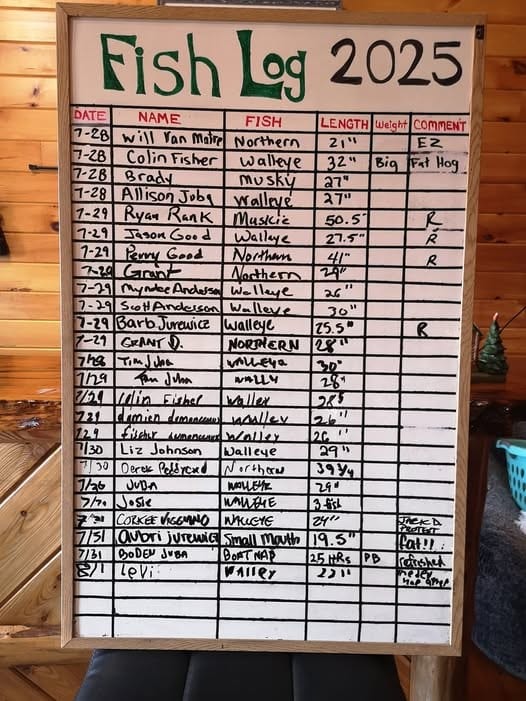 Fish Log 2025
DATE NAME FISH LENGTH Weight COMMENT
7-28 Will Van Matre Northern 21" EZ
7-28 Colin Fisher Walleye 32" Big Fat Hog
7-28 Brady Musky 27"
7-28 Allison Juba Walleye 27"
7-29 Ryan Rank Muskie 50.5" R
7-29 Jason Good Walleye 27.5" R
7-29 Perry Good Northern 41" R
Grant Northern 29"
7-29 Anderson Walleye 26"
7-29 Scott Anderson Walleye 30"
7-29 Barb Jurewicz Walleye 25.5" R
7-29 GRANT D. NORTHERN 28"
7/28 Tim Juba WALLEYE 30"
7/29 Juba WALLY 28"
7/29 Colin Fisher Walley
damien Walley 26"
fischer Walley 26"
7/30 Liz Johnson Walleye 29"
7/30 Derek Northern 39 3/4
JUBA WALLEYE 29"
Josie WALLEYE 3 fish
CORKEE VIGGIANO WALLEYE 24" JACK D
7/31 Jurewicz Small Mouth 19.5" fat!!
7/31 BODEN JUBA BOAT NAP 25 HRs PB refreshed
8/1 Levi Walley 22"